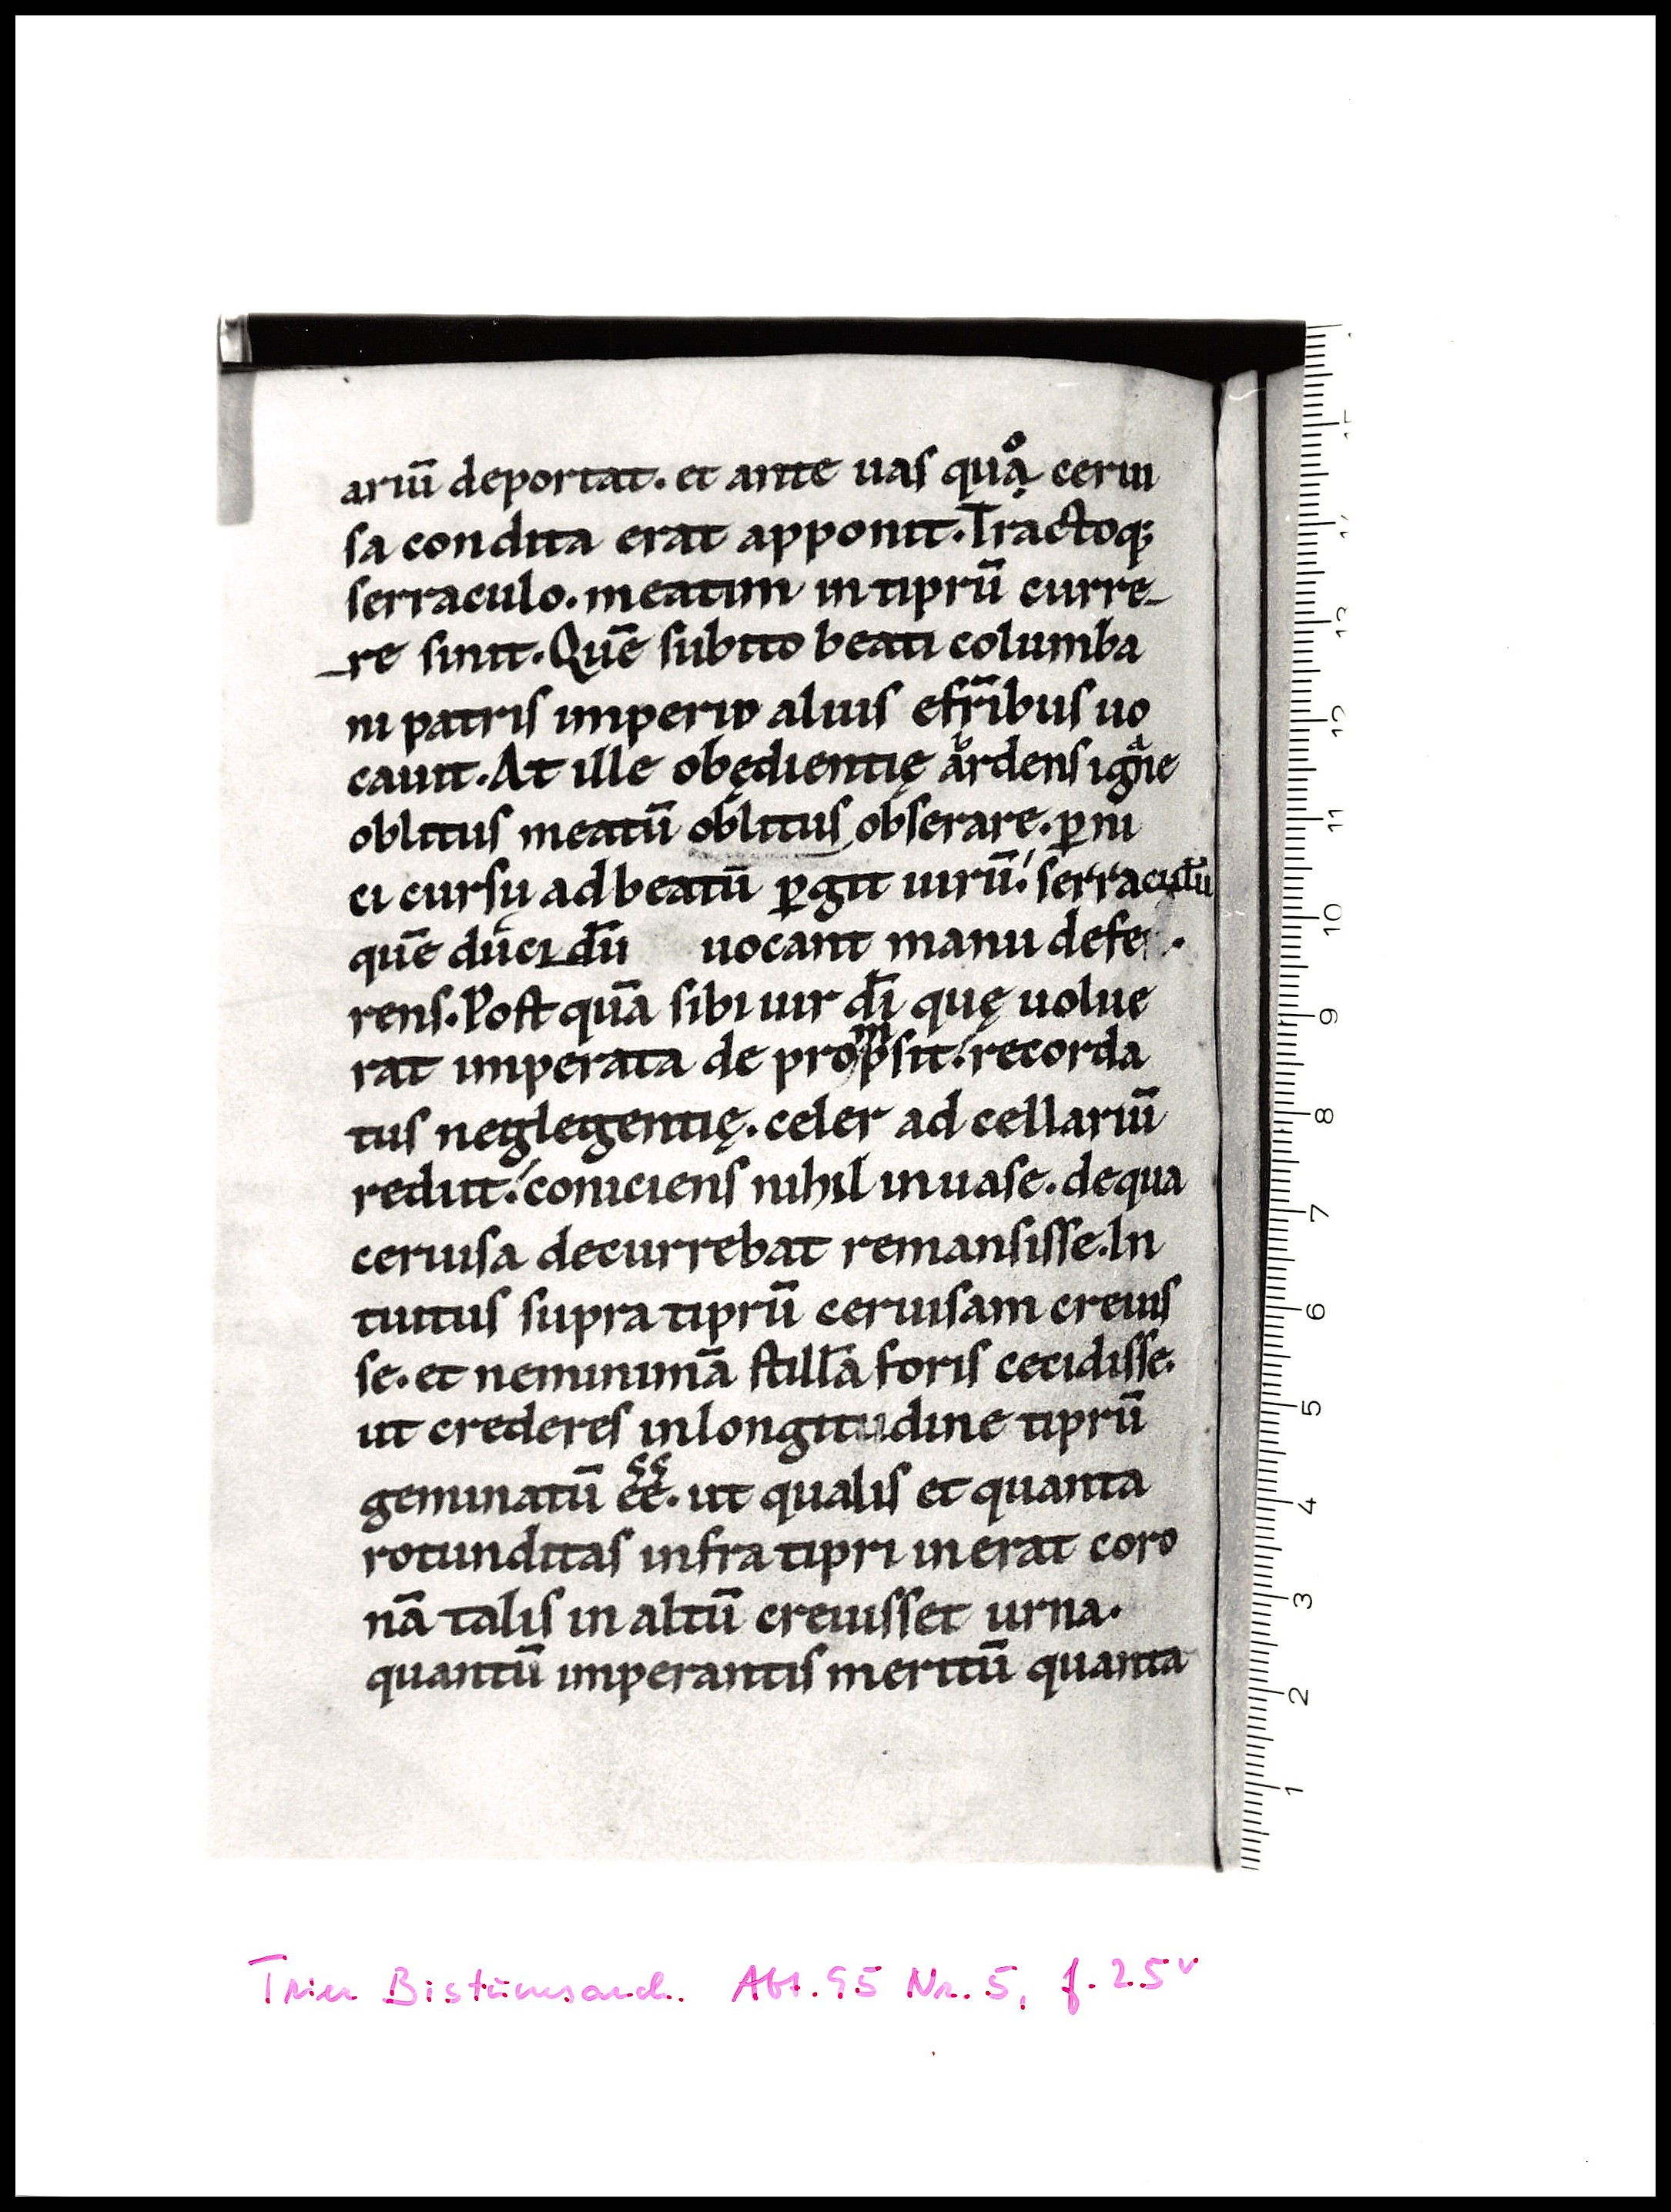 ariū deportat. et ante uas quạͦ cerui
sa condita erat apponit. Tractoq;
serraculo. meatim in tiprū curre-
-re sinit. Quē subito beati columba
ni patris imperio alius e fr̄ibus uo
cauit. At ille obędientię ardens igne
oblitus meatū oblitus obserare. ꝑni
ci cursu ad beatū ꝑgit uirū. serraculū
quē duci dū uocant manu defe .
rens. Post quā sibi uir dī quę uolue
rat imperata de prompsit. recorda
tus neglegentię. celer ad cellariū
rediit. coniciens nihil in uase. de qua
ceruisa decurrebat remansisse. In
tuitus supra tiprū ceruisam creuis
se. et ne minimā stillā foris cecidisse.
ut crederes in longitudine tiprū
geminatū eē. ut qualis et quanta
rotunditas infra tipri inerat coro
nā talis in altū creuisset urna.
quantū imperantis meritū quanta
15
14
13
12
11
10
9
8
7
6
5
4
3
2
1
Trier Bistumsarch. Abt. 95 Nr. 5, f. 25v